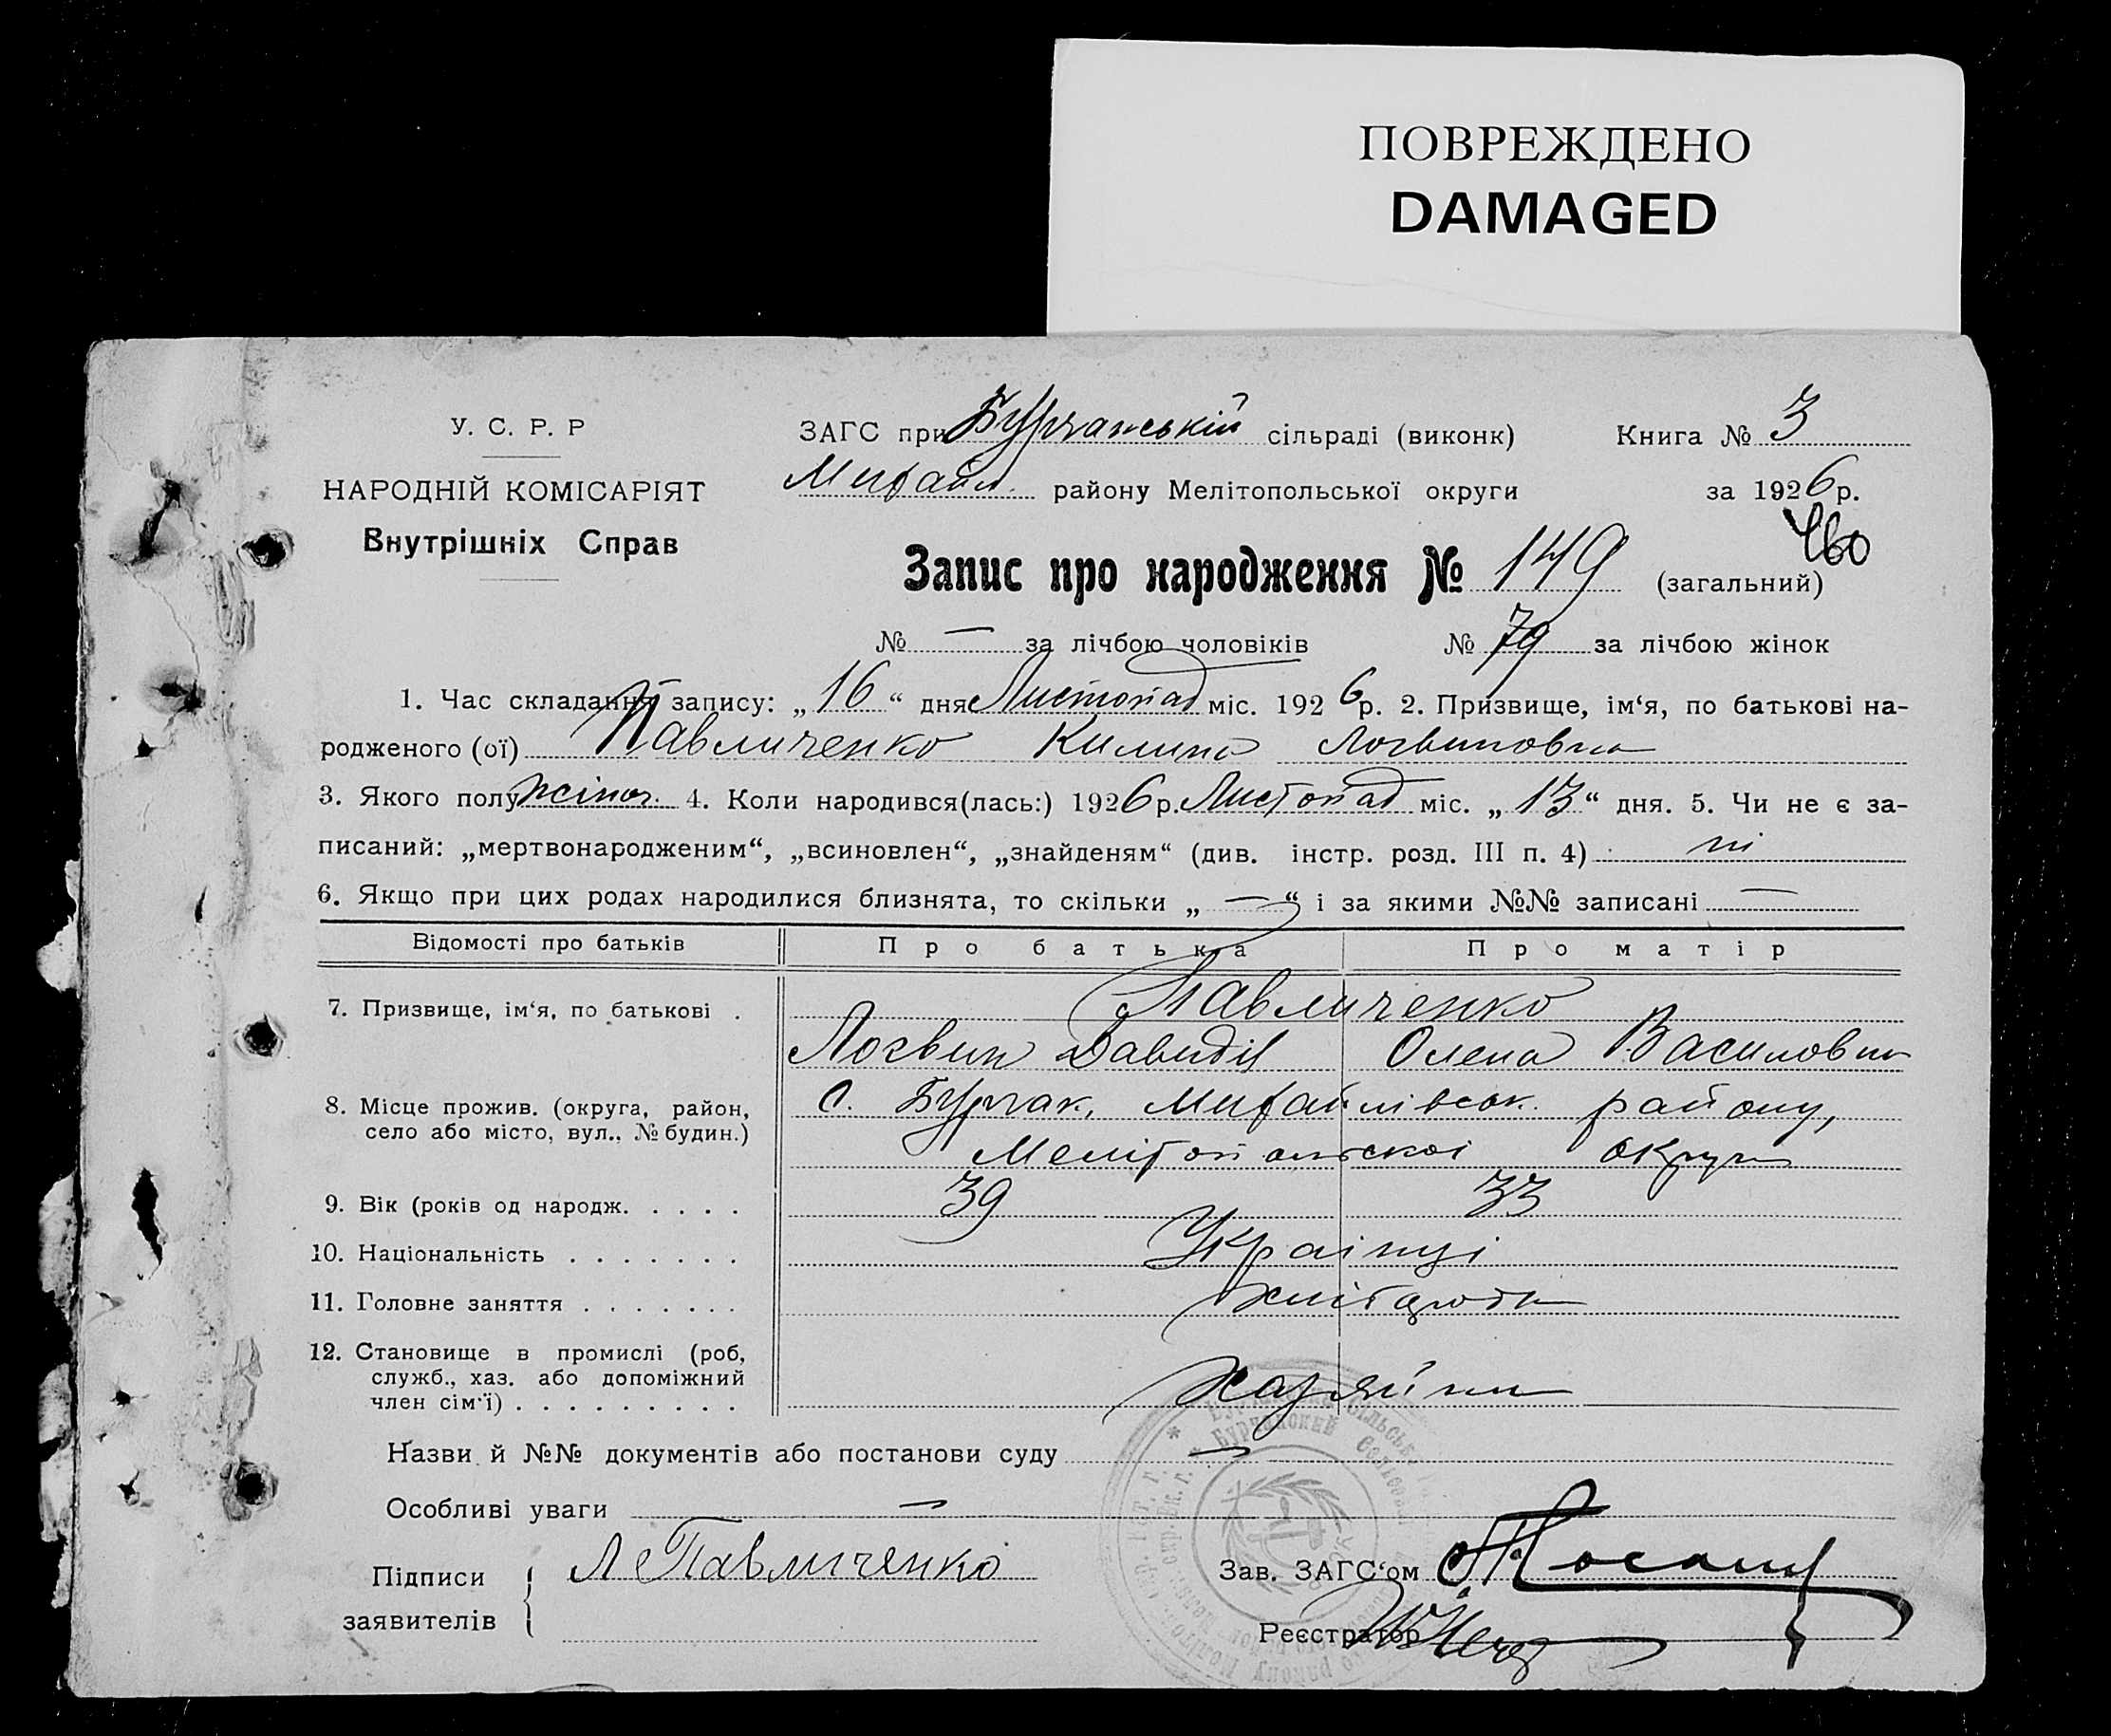 ПОВРЕЖДЕНО
DAMAGED
У. С. Р. Р
НАРОДНІЙ КОМІСАРІЯТ
Внутрішніх Справ
ЗАГС при Бурчанській сільраді (виконк) Книга № 3
Михайл. району Мелітопольської округи за 1926 р.
460
Запис про народження № 149 (загальний)
№ — за лічбою чоловіків № 79 за лічбою жінок
1. Час складання запису: „16“ дня Листопад міс. 1926 р. 2. Призвище, ім‘я, по батькові на-
родженого (ої) Павличенко Килина Логвиновна
3. Якого полу жіноч. 4. Коли народився(лась:) 1926 р. Листопад міс. „13“ дня. 5. Чи не є за-
писаний: „мертвонародженим“, „всиновлен“, „знайденям“ (див. інстр. розд. III п. 4) ні
6. Якщо при цих родах народилися близнята, то скільки „—“ і за якими №№ записані —
Відомості про батьків Про батька Про матір
7. Призвище, ім‘я, по батькові . Павличенко
Логвин Давидів Олена Василовна
8. Місце прожив. (округа, район, село або місто, вул., № будин.) с. Бурчак, Михайлівськ. району,
Мелітопольскоі округи
9. Вік (років од народж. . . . . 39 33
10. Національність . . . . . . . Українці
11. Головне заняття . . . . . . . хлібороби
12. Становище в промислі (роб,
служб., хаз. або допоміжний
член сім‘ї) . . . . . . . . . хазяїни
Назви й №№ документів або постанови суду —
Особливі уваги —
Підписи
заявителів
Л Павличенко
Зав. ЗАГС‘ом
Реєстратор